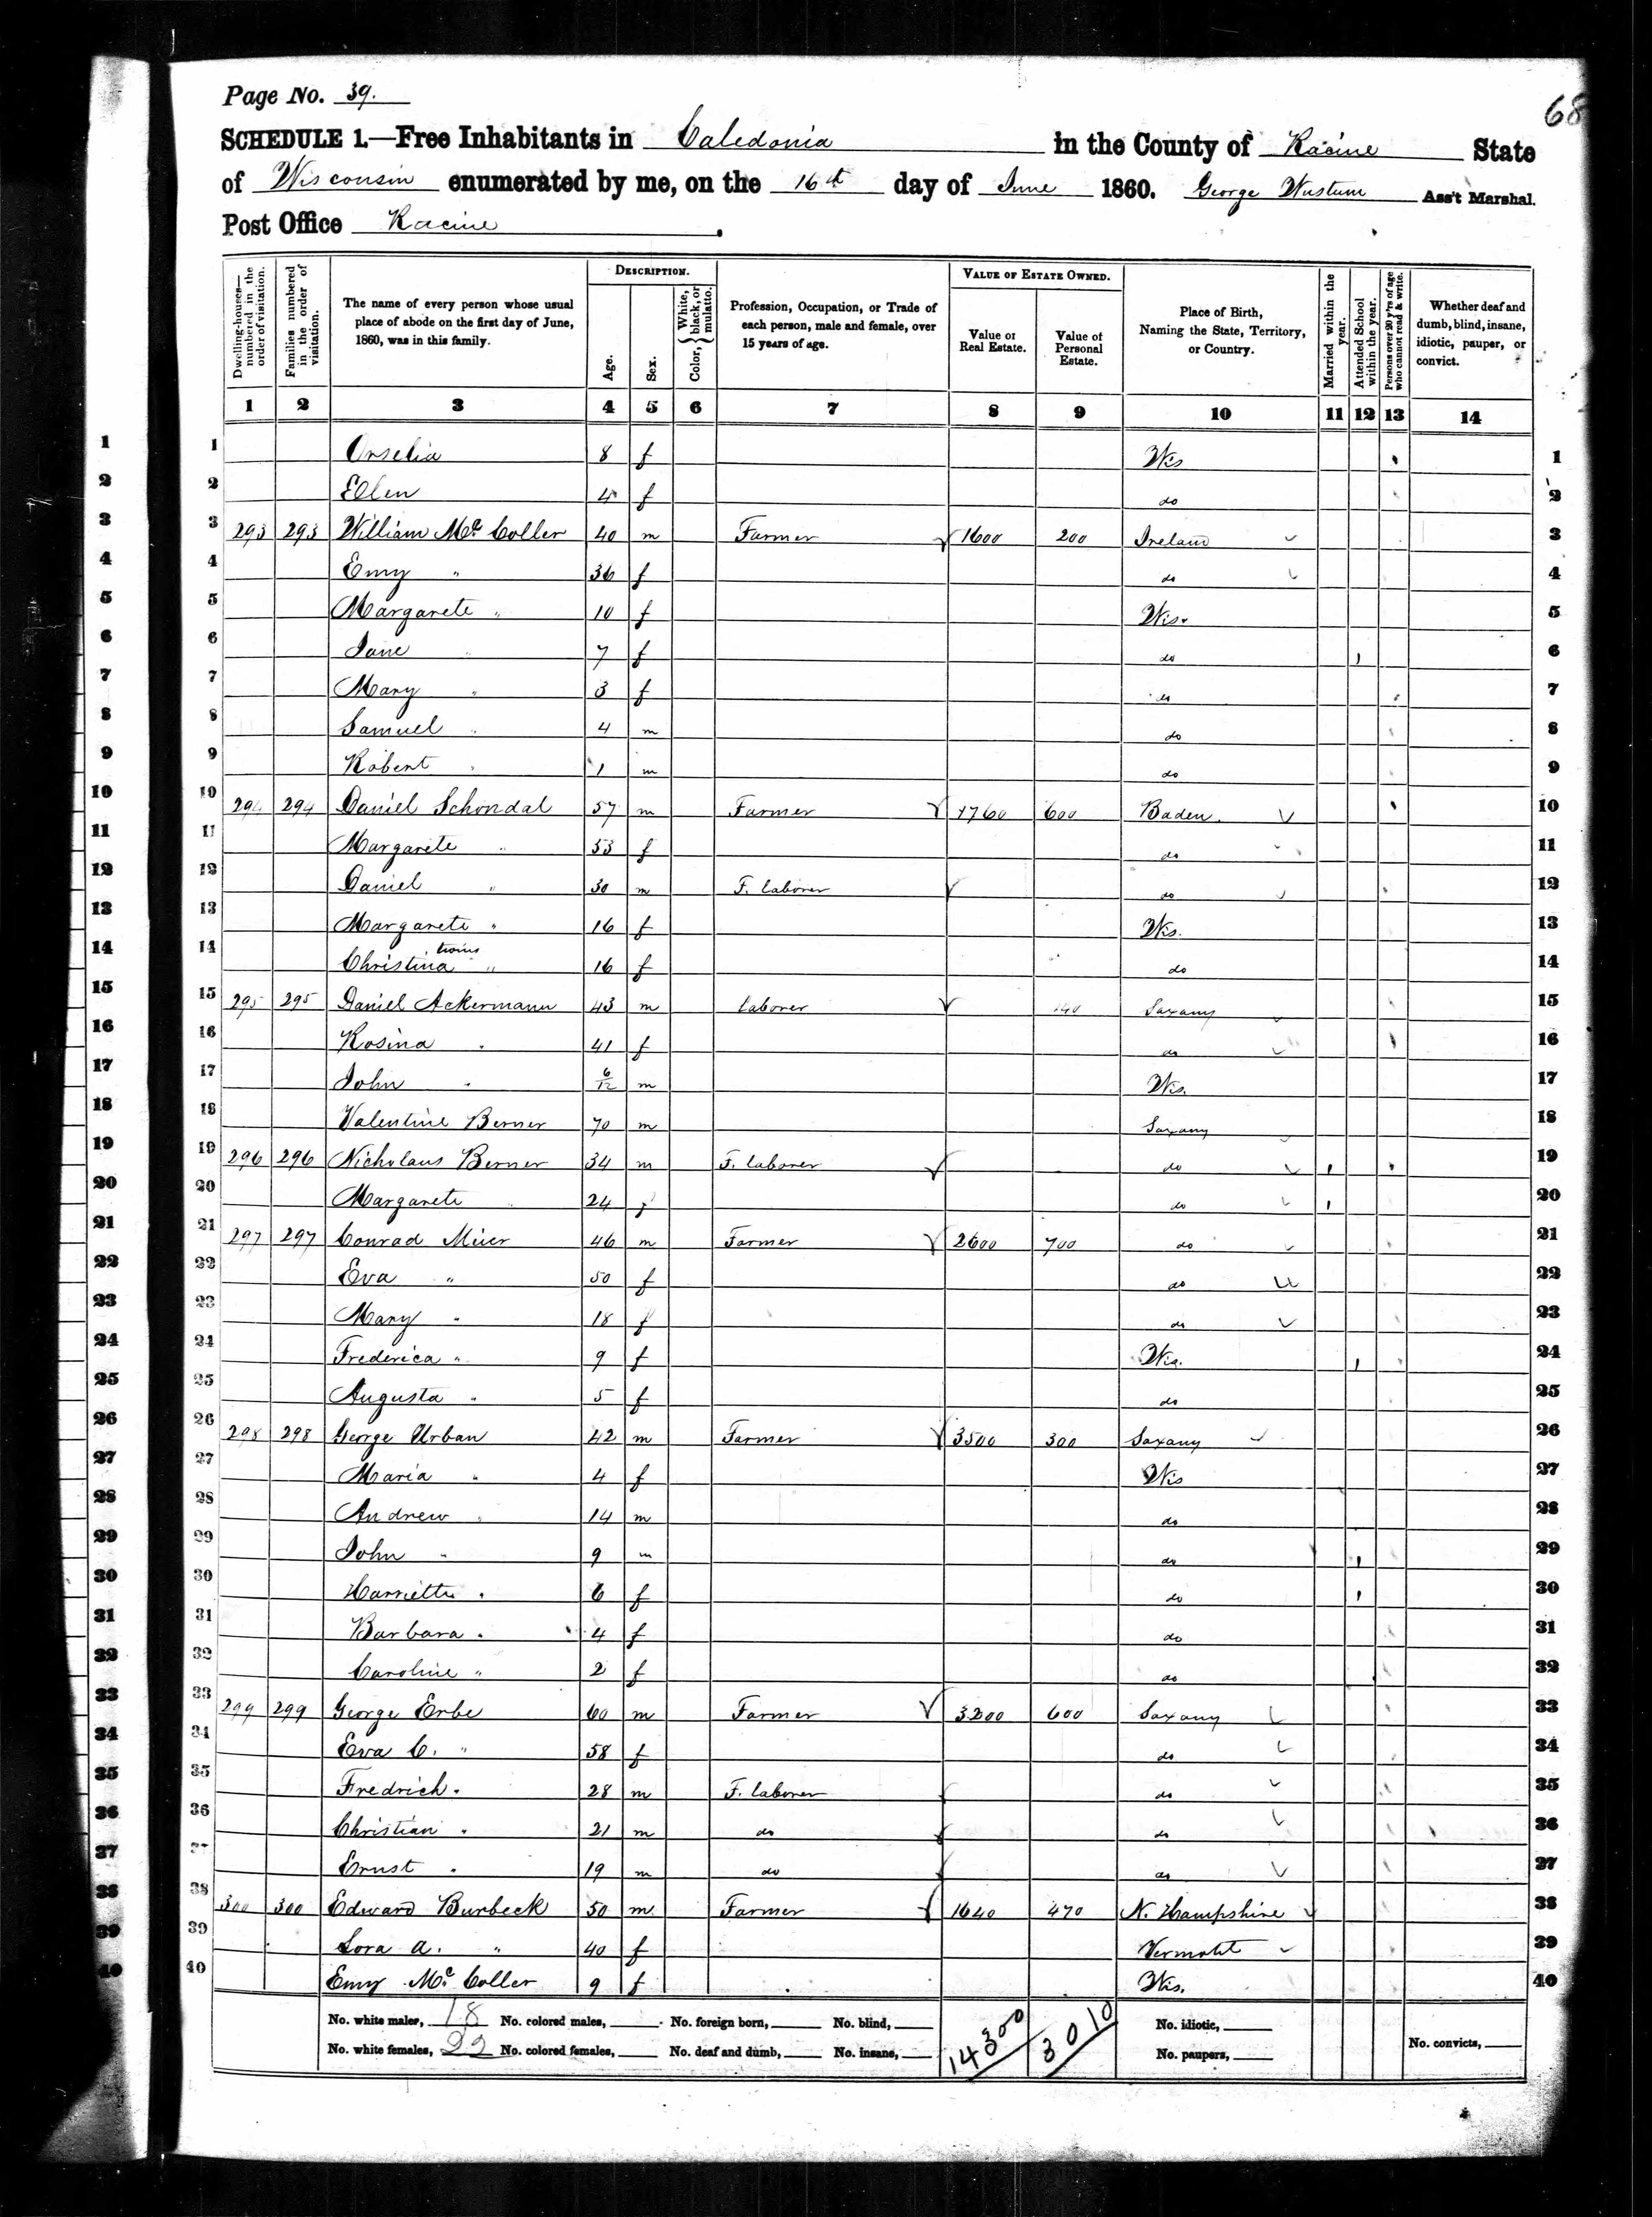 68
Page No. 39.
SCHEDULE 1.—Free Inhabitants in Caledonia in the County of Racine State
of Wisconsin enumerated by me, on the 16th day of June 1860. George Wustum Ass't Marshal.
Post Office Racine.
Dwelling-houses—numbered in the order of visitation. Families numbered in the order of visitation. The name of every person whose usual place of abode on the first day of June, 1860, was in this family. DESCRIPTION. Age. Sex. Color, White, black, or mulatto. Profession, Occupation, or Trade of each person, male and female, over 15 years of age. VALUE OF ESTATE OWNED. Value of Real Estate. Value of Personal Estate. Place of Birth, Naming the State, Territory, or Country. Married within the year. Attended School within the year. Persons over 20 y'rs of age who cannot read & write. Whether deaf and dumb, blind, insane, idiotic, pauper, or convict.
1 2 3 4 5 6 7 8 9 10 11 12 13 14
1 1 Orselia 8 f Wis 1
2 2 Ellen 4 f do 2
3 3 293 293 William Mc Coller 40 m Farmer 1600 200 Ireland 3
4 4 Emy " 36 f do 4
5 5 Margarete " 10 f Wis. 5
6 6 Jane " 7 f do 6
7 7 Mary " 3 f do 7
8 8 Samuel " 4 m do 8
9 9 Robert " 1 m do 9
10 10 294 294 Daniel Schondal 57 m Farmer 1760 600 Baden. 10
11 11 Margarete " 53 f do 11
12 12 Daniel " 30 m F. laborer do 12
13 13 Margarete " 16 f Wis. 13
14 14 Christina twins " 16 f do 14
15 15 295 295 Daniel Ackermann 43 m laborer 140 Saxany 15
16 16 Rosina " 41 f do 16
17 17 John " 6/12 m Wis. 17
18 18 Valentine Berner 70 m Saxany 18
19 19 296 296 Nicholaus Berner 34 m F. laborer do 19
20 20 Margarete " 24 f do 20
21 21 297 297 Conrad Miier 46 m Farmer 2600 700 do 21
22 22 Eva " 50 f do 22
23 23 Mary " 18 f do 23
24 24 Frederica " 9 f Wis. 24
25 25 Augusta " 5 f do 25
26 26 298 298 George Urban 42 m Farmer 3500 300 Saxany 26
27 27 Maria " 4 f Wis 27
28 28 Andrew " 14 m do 28
29 29 John " 9 m do 29
30 30 Harriette " 6 f do 30
31 31 Barbara " 4 f do 31
32 32 Caroline " 2 f do 32
33 33 299 299 George Erbe 60 m Farmer 3200 600 Saxany 33
34 34 Eva C. " 58 f do 34
35 35 Fredrich " 28 m F. laborer do 35
36 36 Christian " 21 m do do 36
37 37 Ernst " 19 m do do 37
38 38 300 300 Edward Burbeck 50 m Farmer 1640 470 N. Hampshire 38
39 39 Lora A. " 40 f Vermont 39
40 40 Emy Mc Coller 9 f Wis. 40
No. white males, 18 No. colored males, No. foreign born, No. blind, 14300 3010 No. idiotic,
No. white females, 22 No. colored females, No. deaf and dumb, No. insane, No. paupers, No. convicts,